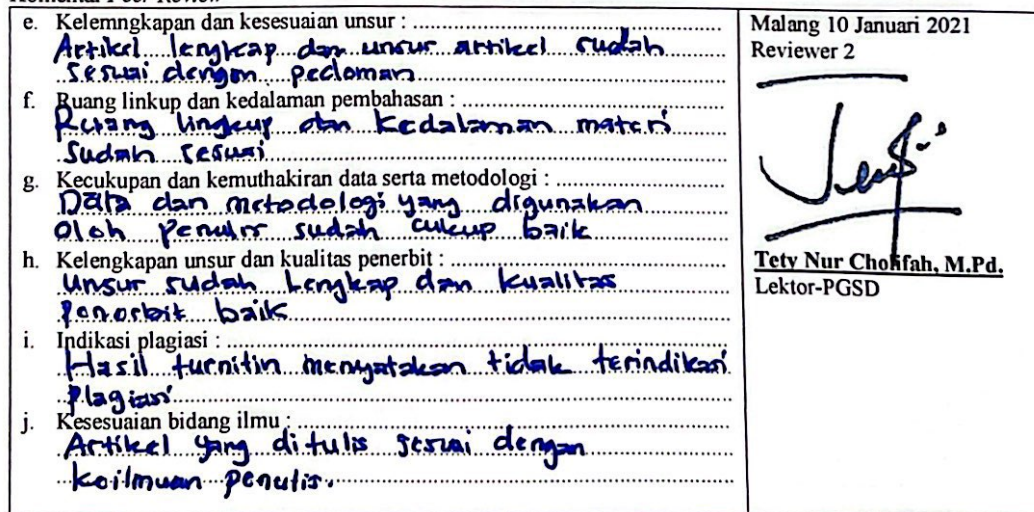 e. Kelemngkapan dan kesesuaian unsur :
Artikel lengkap dan unsur artikel sudah
sesuai dengan pedoman
f. Ruang linkup dan kedalaman pembahasan :
Ruang lingkup dan Kedalaman materi
Sudah sesuai
g. Kecukupan dan kemuthakiran data serta metodologi :
Data dan metodologi yang digunakan
oleh Penulis sudah cukup baik
h. Kelengkapan unsur dan kualitas penerbit :
Unsur sudah Lengkap dan kualitas
Penerbit baik
i. Indikasi plagiasi :
Hasil turnitin menyatakan tidak terindikasi
Plagiasi
j. Kesesuaian bidang ilmu :
Artikel yang ditulis sesuai dengan
keilmuan penulis.
Malang 10 Januari 2021
Reviewer 2
Tety Nur Cholifah, M.Pd.
Lektor-PGSD